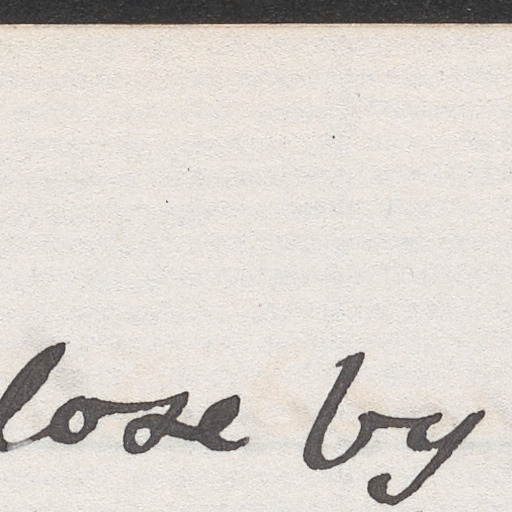 lose by